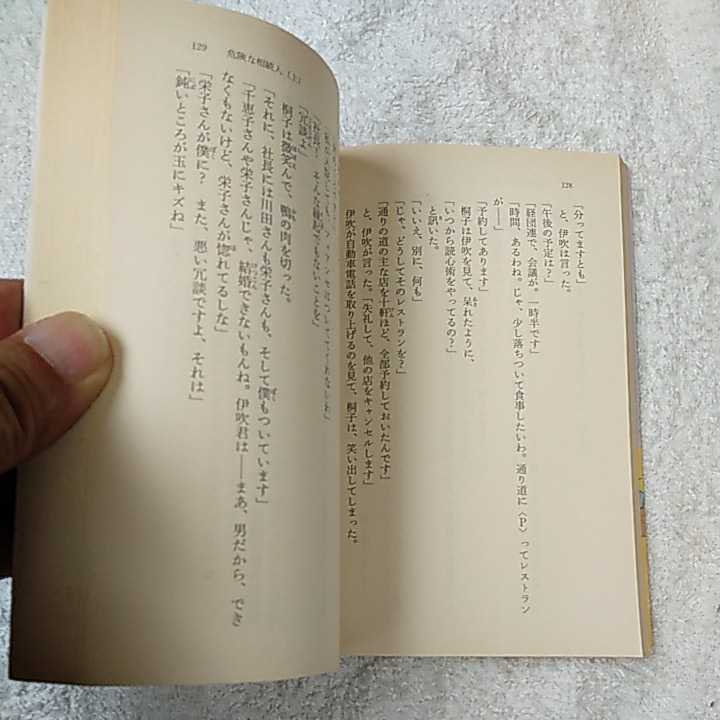 128
「分ってますとも」
と、伊吹は言った。
「午後の予定は?」
「経団連で、会議が。一時半です」
「時間、あるわね。じゃ、少し落ちついて食事したいわ。通り道に〈P〉ってレストラン
が――」
「予約してあります」
桐子は伊吹を見て、呆れたように、
「いつから読心術をやってるの?」
と訊いた。
「いいえ、別に、何も」
「じゃ、どうしてそのレストランを?」
「通りの道の主な店を十軒ほど、全部予約しておいたんです」
と、伊吹が言った。「失礼して、他の店をキャンセルします」
伊吹が自動車電話を取り上げるのを見て、桐子は、笑い出してしまった。
129 危険な相続人(上)
「社長! そんな縁起でもないことを」
「冗談よ」
桐子は微笑んで、鴨の肉を切った。
「それに、社長には川田さんも栄子さんも、そして僕もついています」
「千恵子さんや栄子さんじゃ、結婚できないもんね。伊吹君は――まあ、男だから、でき
なくもないけど、栄子さんが惚れてるしな」
「栄子さんが僕に? また、悪い冗談ですよ、それは」
「鈍いところが玉にキズね」